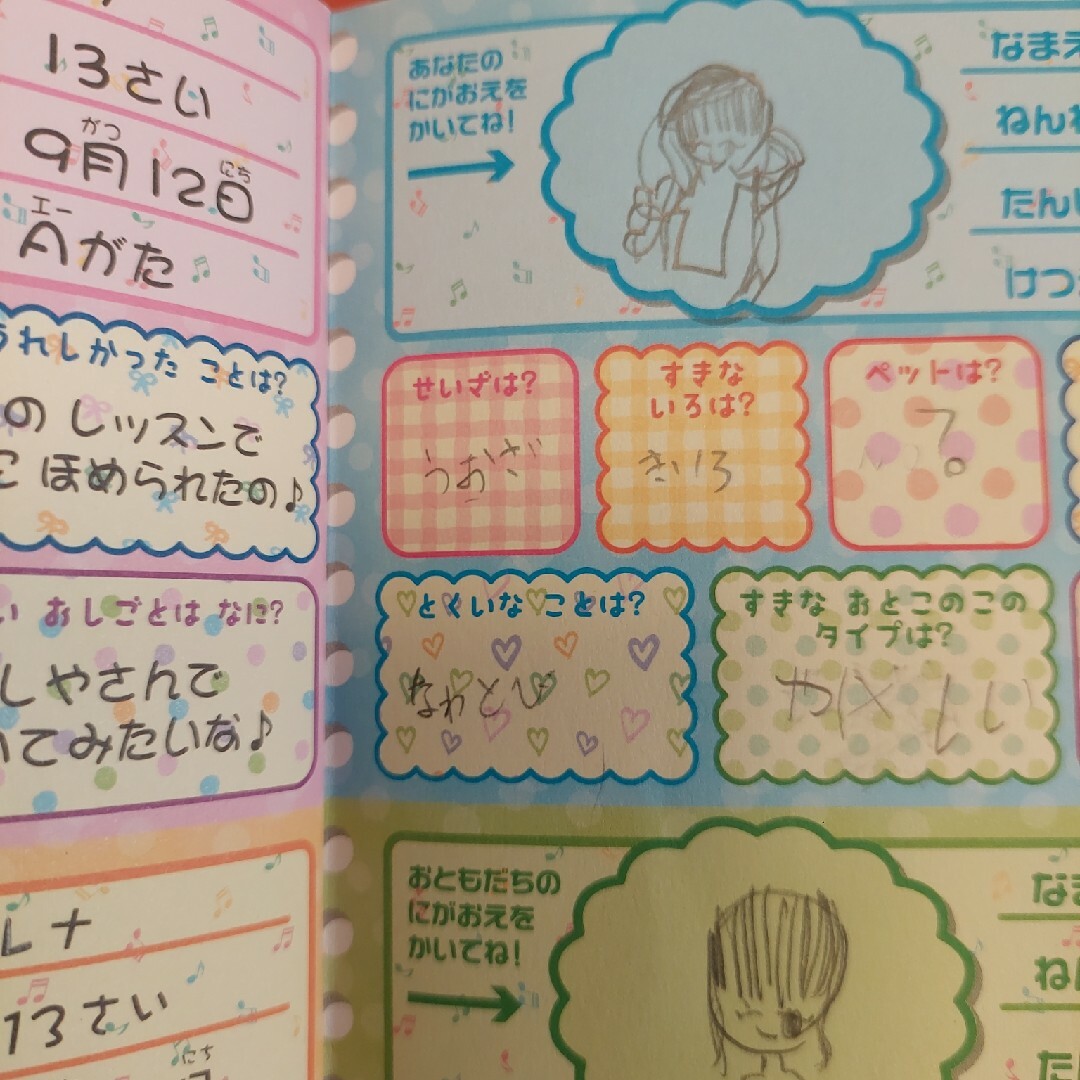 13さい
がつ にち
9月12日
エー
Aがた
うれしかった ことは?
の レッスンで
ほめられたの♪
い おしごとは なに?
しやさんで
いてみたいな♪
レナ
13さい
にち
あなたの
にがおえを
かいてね!
なまえ
ねんれ
たん
けつ
せいざは?
うおざ
すきな
いろは?
きいろ
ペットは?
とくいな ことは?
なわとび
すきな おとこのこの
タイプは?
やさしい
おともだちの
にがおえを
かいてね!
なま
ねん
たん